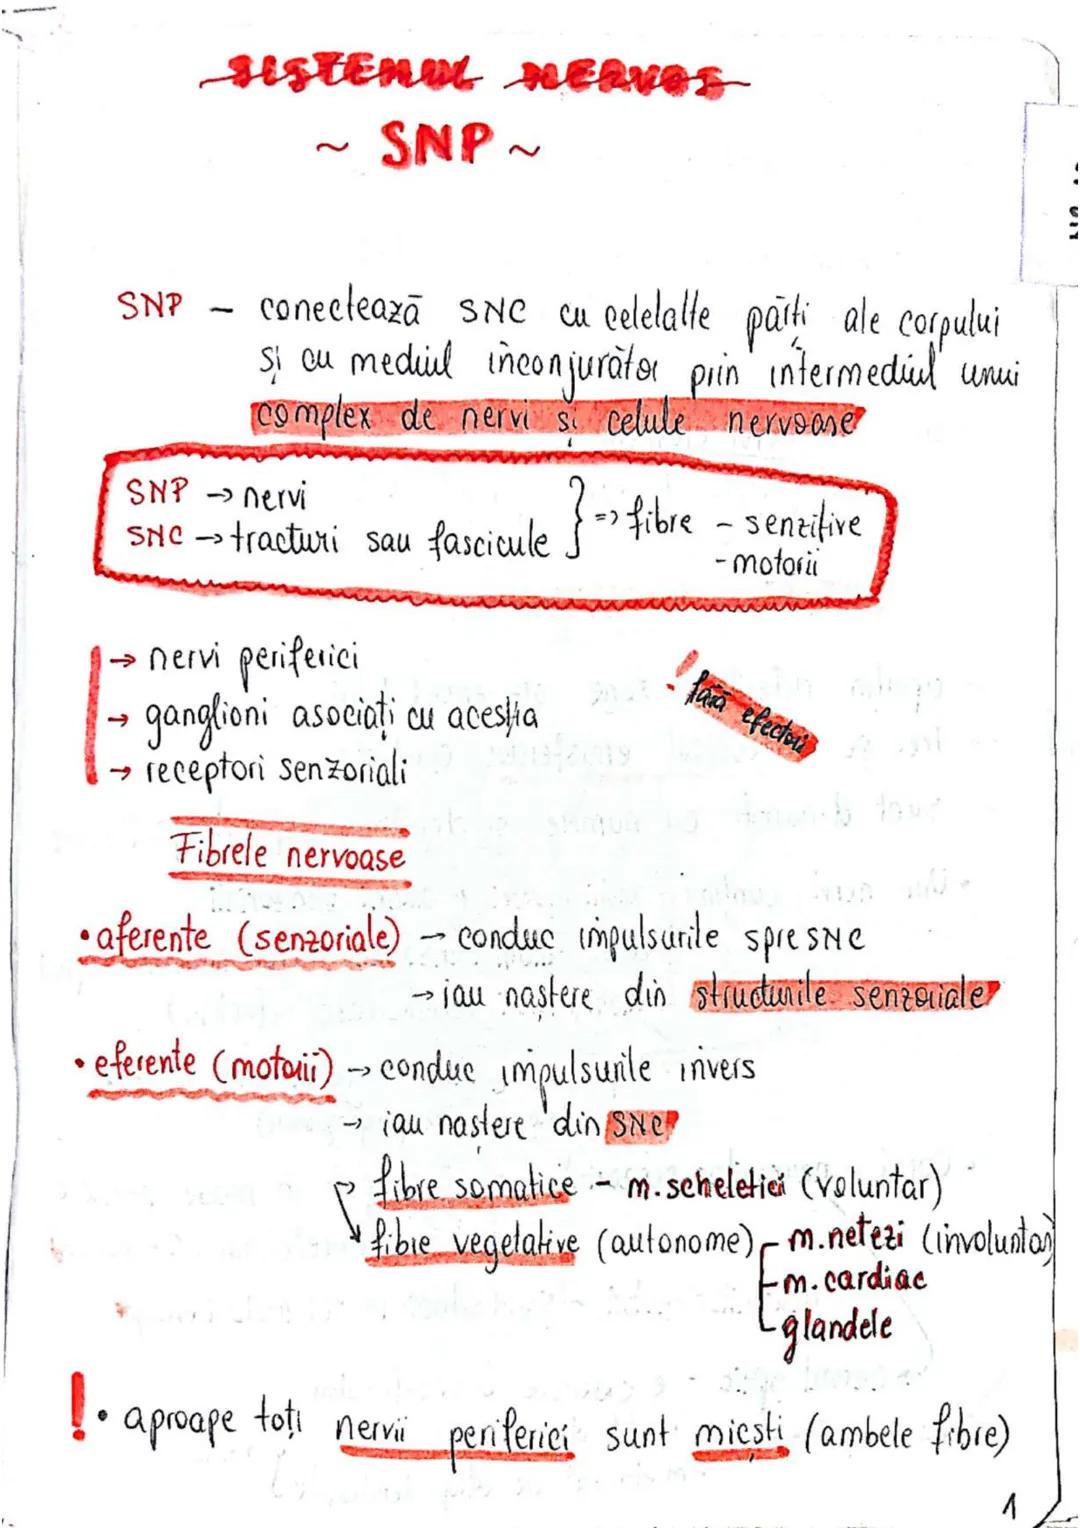 SISTEMUL NERVOS
~ SNP ~
SNP - conectează SNC cu celelalte părți ale corpului
și cu mediul înconjurător prin intermediul unui
complex de nervi și celule nervoase
SNP → nervi
SNC → tracturi sau fascicule } => fibre - senzitive
- motorii
→ nervi periferici
→ ganglioni asociați cu aceștia
→ receptori senzoriali
! fără efectori
Fibrele nervoase
• aferente (senzoriale) → conduc impulsurile spre SNC
→ iau naștere din structurile senzoriale
• eferente (motorii) → conduc impulsurile invers
→ iau naștere din SNC
fibre somatice - m. scheletici (voluntar)
fibre vegetative (autonome) - m. netezi (involuntar)
- m. cardiac
- glandele
! • aproape toți nervii periferici sunt micști (ambele fibre)
1